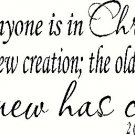 nyone is in Chr
ew creation; the old
new has c
2